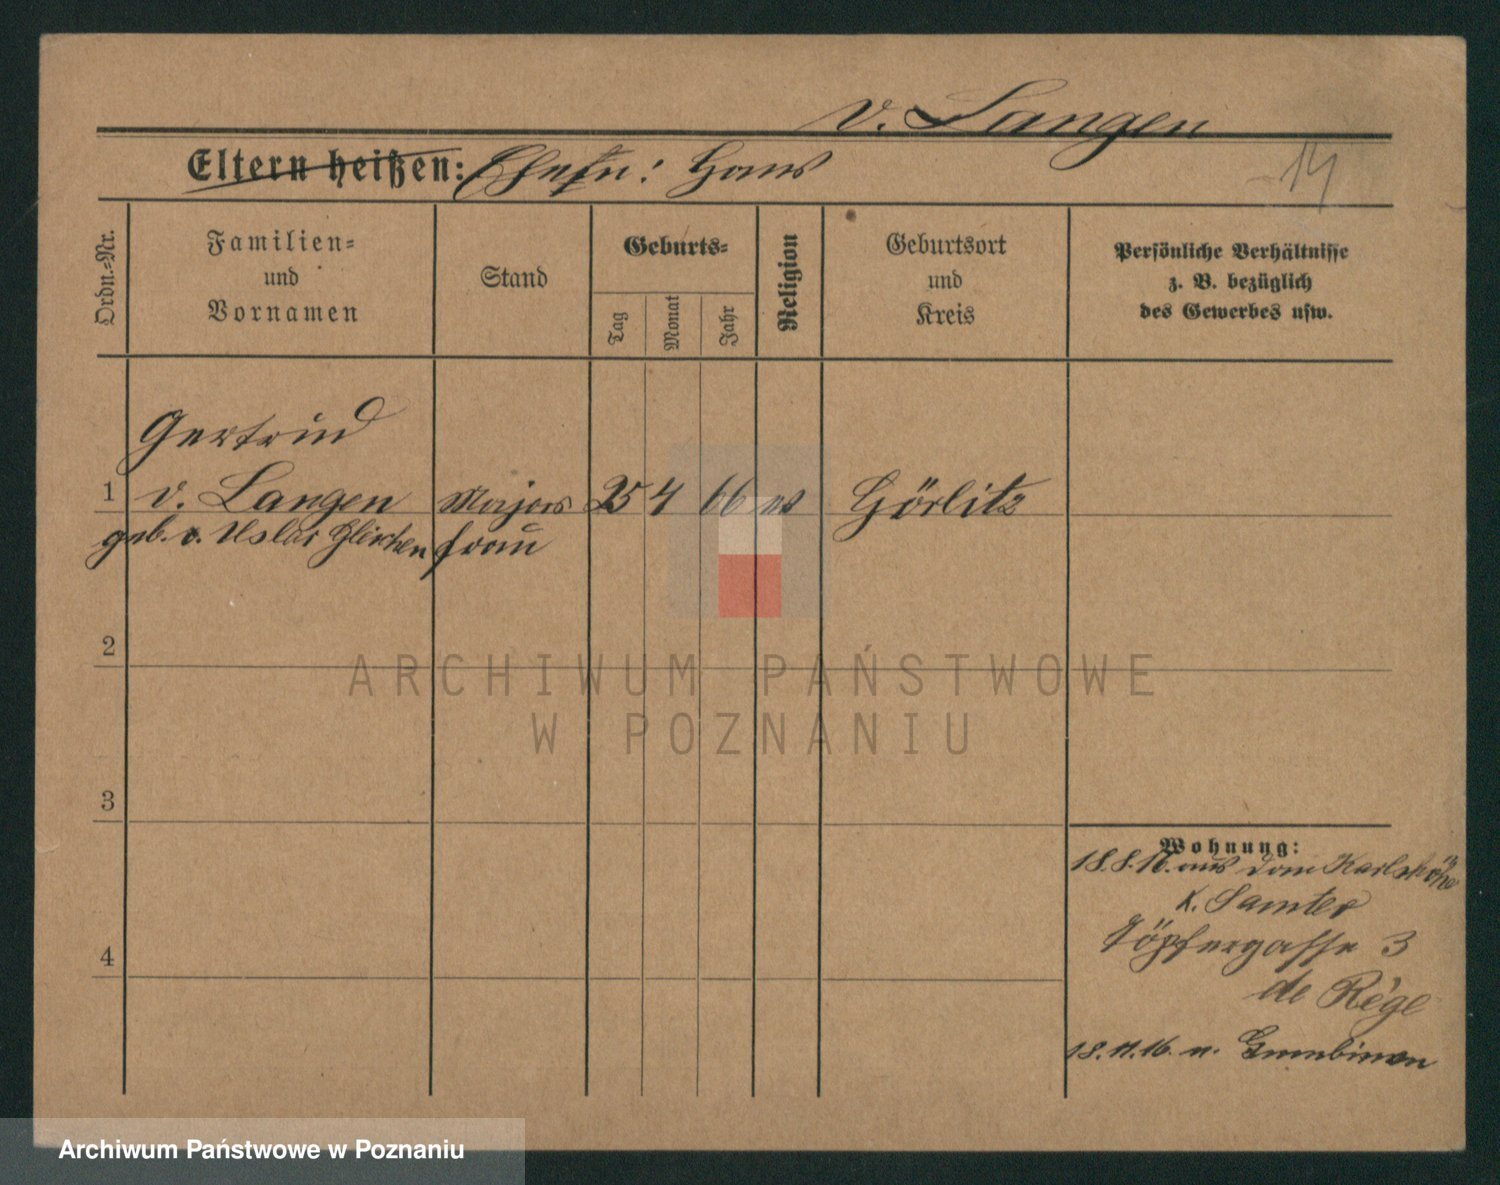 v. Langen
Eltern heißen: Ehefr: Hans
14
Ordn.=Nr.
Familien=
und
Vornamen
Stand
Geburts=
Tag
Monat
Jahr
Religion
Geburtsort
und
Kreis
Persönliche Verhältnisse
z. B. bezüglich
des Gewerbes usw.
Gertrud
1 v. Langen Majors 25 4 66 ev Görlitz
geb. v. Uslar Gleichen frau
2
ARCHIWUM PAŃSTWOWE
W POZNANIU
3
Wohnung:
18.8.16. aus Dom Karlshöhe
K. Samter
4 Töpfergasse 3
de Rège
18.11.16. n. Gumbinnen
Archiwum Państwowe w Poznaniu